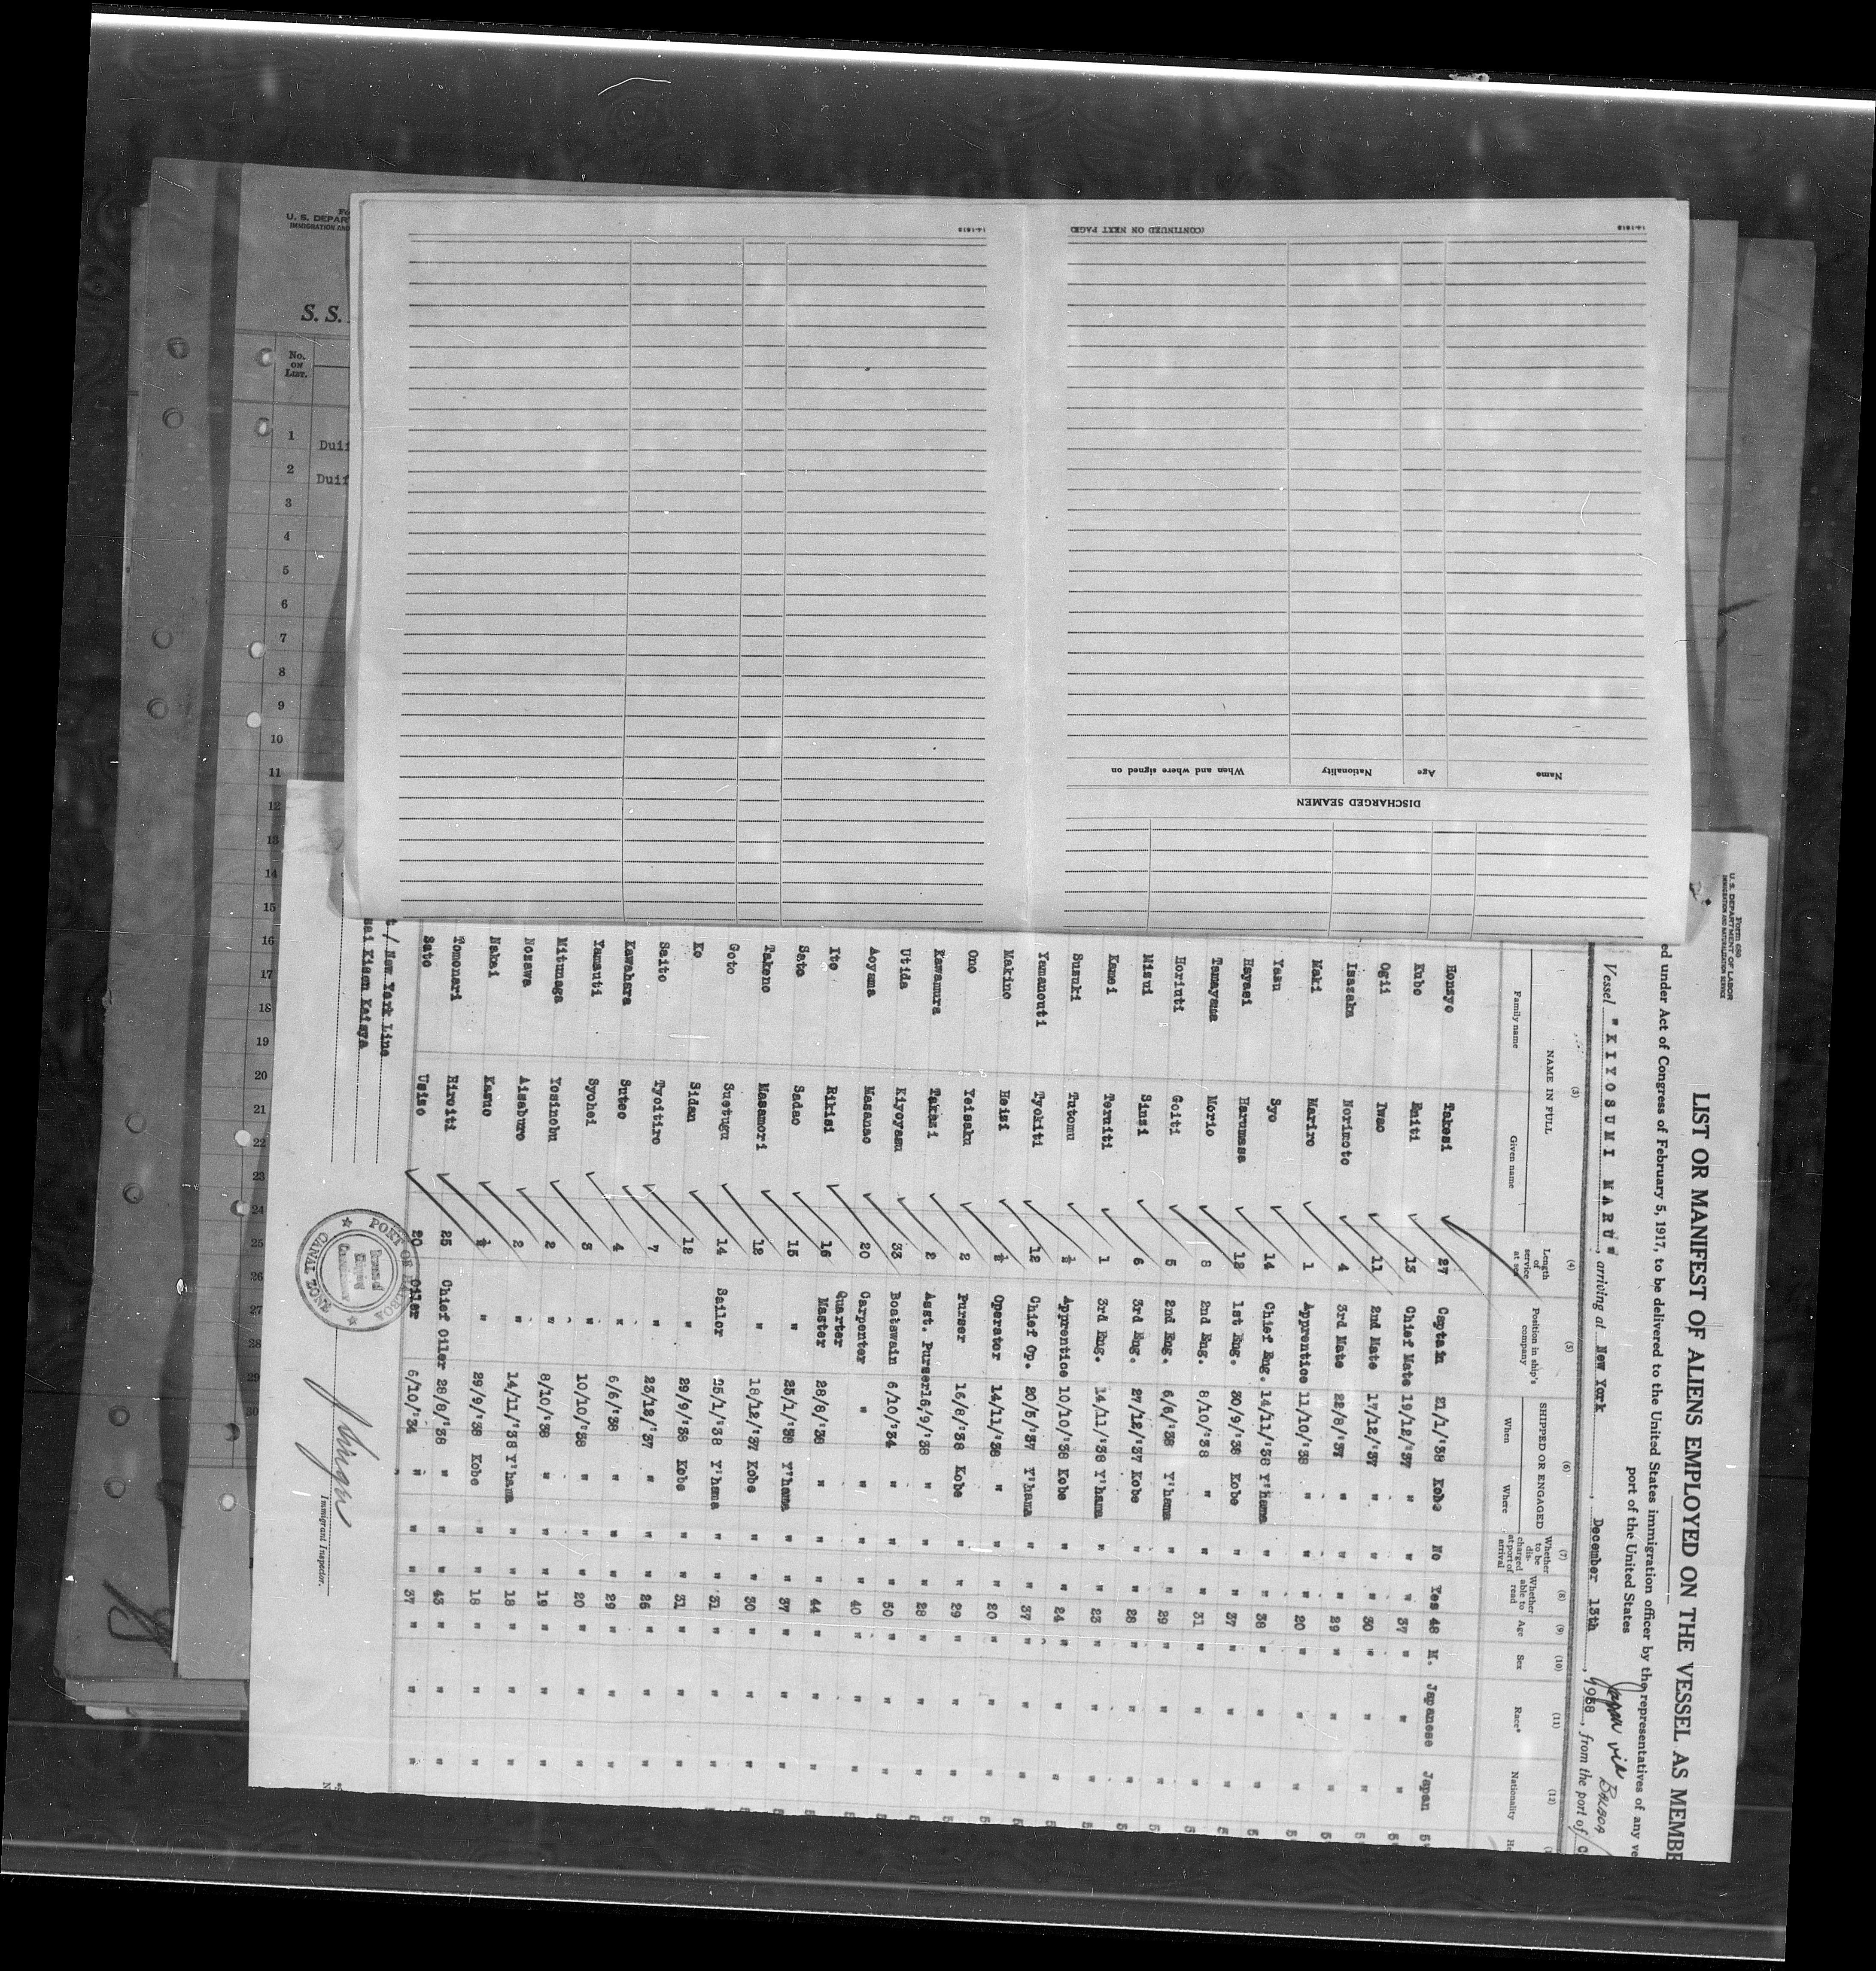 Form 680
U. S. DEPARTMENT OF LABOR
IMMIGRATION AND NATURALIZATION SERVICE
LIST OR MANIFEST OF ALIENS EMPLOYED ON THE VESSEL AS MEMBE
ed under Act of Congress of February 5, 1917, to be delivered to the United States immigration officer by the representatives of any ve
port of the United States
Vessel "KIYOSUMI MARU", arriving at New York, December 13th, 1938, from the port of
Japan via BALBOA
(3) (4) (5) (6) (7) (8) (9) (10) (11) (12)
NAME IN FULL
Family name Given name
Length of service at sea
Position in ship's company
SHIPPED OR ENGAGED
When Where
Whether to be discharged at port of arrival
Whether able to read
Age Sex Race* Nationality
Honsyo Takesi 27 Captain 21/1/'38 Kobe No Yes 48 M. Japanese Japan
Kubo Eniti 13 Chief Mate 19/12/'37 " " " 37 " " "
Ogii Iwao 11 2nd Mate 17/12/'37 " " " 30 " " "
Isazaka Norimoto 4 3rd Mate 22/8/'37 " " " 29 " " "
Maki Mariro 1 Apprentice 11/10/'38 " " " 20 " " "
Yasu Syo 14 Chief Eng. 14/11/'38 Y'hama " " 38 " " "
Hayasi Harumasa 12 1st Eng. 30/9/'38 Kobe " " 37 " " "
Tamayama Morio 8 2nd Eng. 8/10/'38 " " " 31 " " "
Horiuti Goiti 5 2nd Eng. 6/6/'38 Y'hama " " 29 " " "
Misui Sinsi 6 3rd Eng. 27/12/'37 Kobe " " 28 " " "
Kamei Teruiti 1 3rd Eng. 14/11/'38 Y'hama " " 23 " " "
Susuki Tutomu ½ Apprentice 10/10/'38 Kobe " " 24 " " "
Yamanouti Tyokiti 12 Chief Op. 20/5/'37 Y'hama " " 37 " " "
Makino Heisi ½ Operator 14/11/'38 " " " 20 " " "
Ono Yeisaku 2 Purser 16/8/'38 Kobe " " 29 " " "
Kawamura Takesi 2 Asst. Purser 16/9/'38 " " " 28 " " "
Utida Kiyoyasu 33 Boatswain 6/10/'34 " " " 50 " " "
Aoyama Masanao 20 Carpenter " " " " 40 " " "
Ito Rikisi 16 Quarter Master 28/8/'38 " " " 44 " " "
Sato Sadao 15 " 25/1/'38 Y'hama " " 37 " " "
Takeno Masamori 12 " 18/12/'37 Kobe " " 30 " " "
Goto Suetugu 14 Sailor 25/1/'38 Y'hama " " 31 " " "
Ko Sidau 12 " 29/9/'38 Kobe " " 31 " " "
Saito Tyoitiro 7 " 23/12/'37 " " " 26 " " "
Kawahara Suteo 4 " 6/6/'38 " " " 29 " " "
Yamauti Syohei 3 " 10/10/'38 " " " 20 " " "
Mitunaga Yosinobu 2 " 8/10/'38 " " " 19 " " "
Nozawa Aisaburo 2 " 14/11/'38 Y'hama " " 18 " " "
Nakai Kasuo ½ " 29/9/'38 Kobe " " 18 " " "
Tomonari Hiroiti 25 Chief Oiler 28/8/'38 " " " 43 " " "
Sato Usiso 20 Oiler 6/10/'34 " " " 37 " " "
t / New York Line
sai Kisen Kaisya
PORT OF BALBOA
CANAL ZONE
Immigrant Inspector.
(CONTINUED ON NEXT PAGE)
14-1613
14-1613
DISCHARGED SEAMEN
Name Age Nationality When and where signed on
U. S. DEPAR
IMMIGRATION AND
S. S.
No. ON LIST.
1 Duif
2 Duif
3
4
5
6
7
8
9
10
11
12
13
14
15
16
17
18
19
20
21
22
23
24
25
26
27
28
29
30